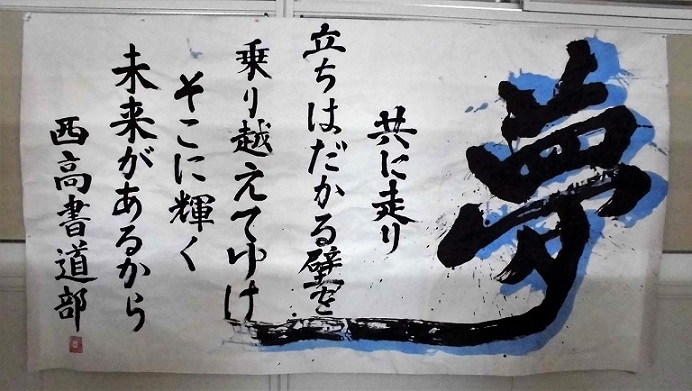 夢
共に走り
立ちはだかる壁を
乗り越えてゆけ
そこに輝く
未来があるから
西高書道部